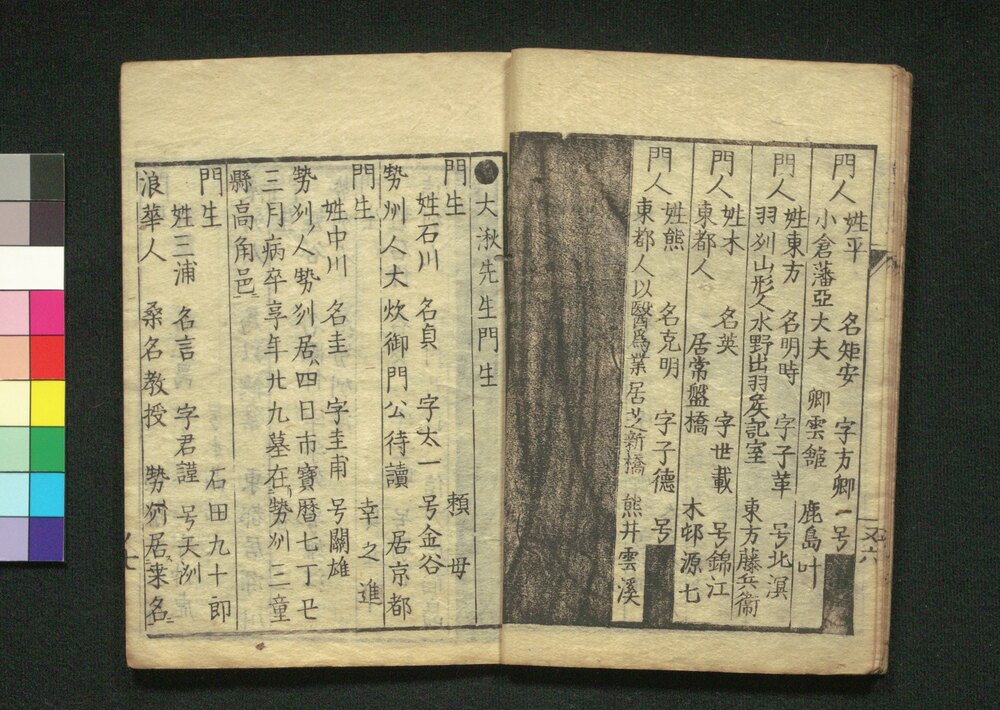 門人 姓平 名矩安 字方卿一号
小倉藩亞大夫 卿雲館 鹿島叶
門人 姓東方 名明時 字子革 号北溟
羽刕山形人水野出羽矦記室 東方藤兵衞
門人 姓木 名英 字世載 号錦江
東都人 居常盤橋 木邨源七
門人 姓熊 名克明 字子德 号
東都人以醫爲業居芝新橋 熊井雲溪
又六
●大湫先生門生
門生 姓石川 名貞 字太一 号金谷
勢州人大炊御門公待讀 居京都 頼母
門生 姓中川 名圭 字圭甫 号關雄
勢刕人勢刕居四日市寶暦七丁丑 幸之進
三月病卒享年廿九墓在勢刕三重
縣高角邑
門生 姓三浦 名言 字君謹 号天洌 石田九十郎
浪華人 桑名教授 勢州居桒名
七